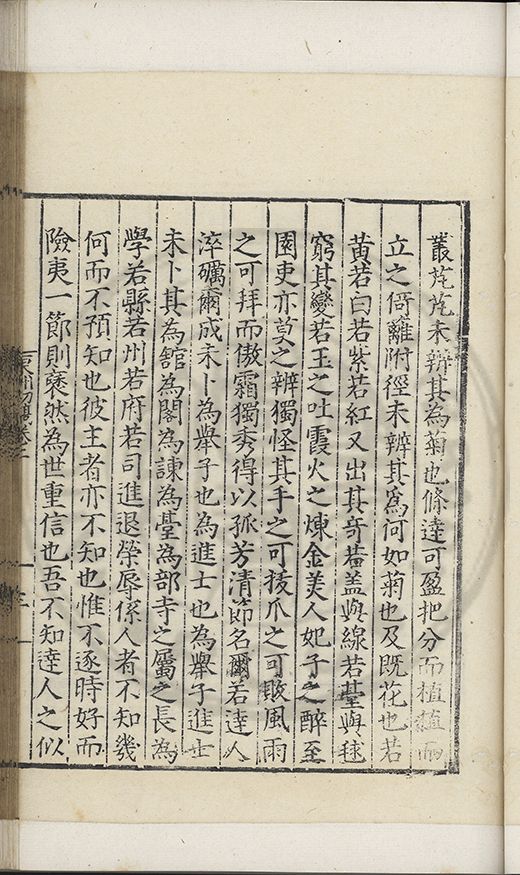 叢芃芃未辨其為菊也條達可盈把分而植植而
立之倚離附徑未辨其為何如菊也及既花也若
黃若白若紫若紅又出其奇若盖與線若臺與毬
窮其變若玉之吐霞火之煉金美人妃子之醉至
園吏亦莫之辨獨怪其手之可挼爪之可
風雨
之可拜而傲霜獨秀得以孤芳清節名爾若達人
淬礪爾成未卜為舉子也為進士也為舉子進士
未卜其為舘為閣為諫為臺為部寺之屬之長為
學若縣若州若府若司進退榮辱係人者不知幾
何而不預知也彼主者亦不知也惟不逐時好而
險夷一節則褎然為世重信也吾不知達人之似